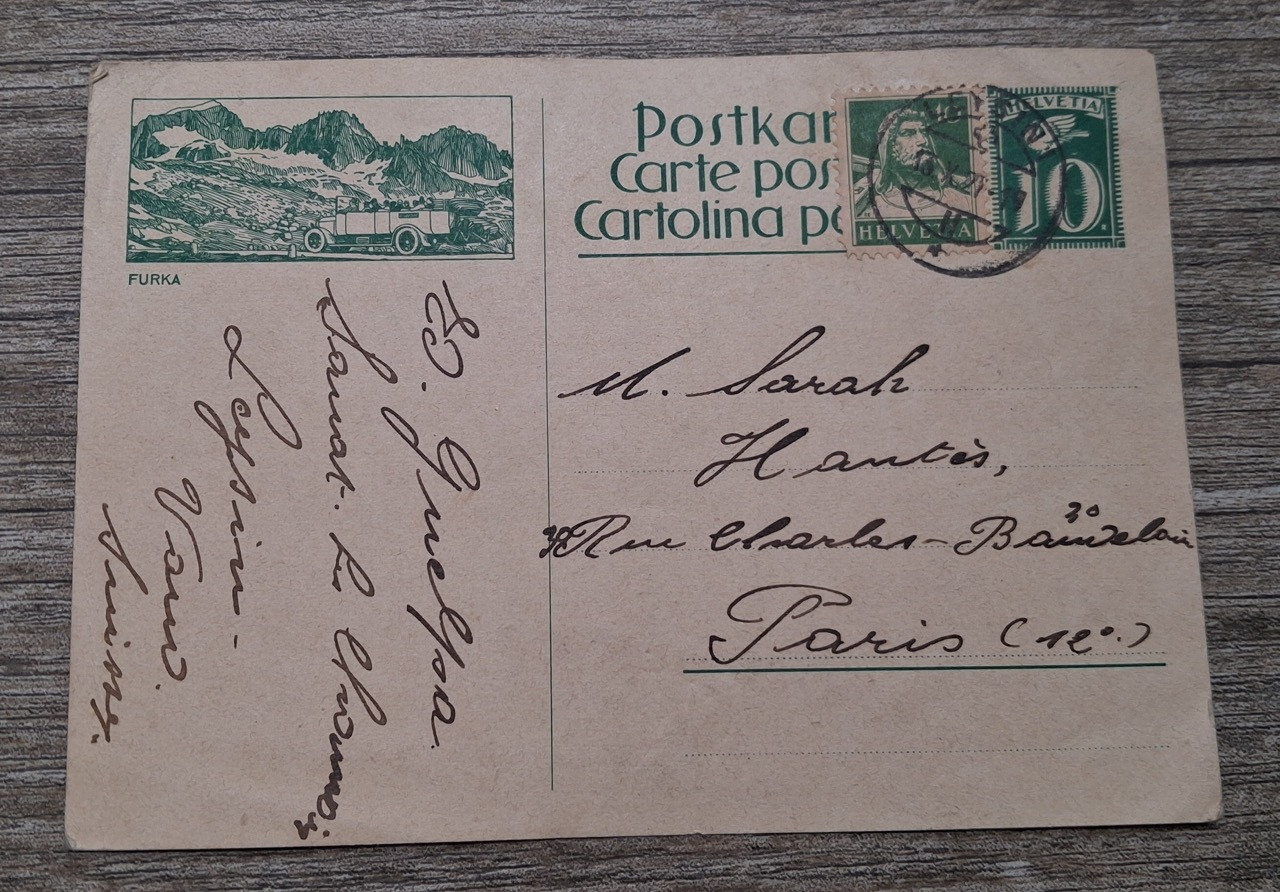 FURKA
Postkar
Carte pos
Cartolina po
HELVETIA
HELVETIA
10
M. Sarah
Hantès,
Rue Charles-Baudelair
Paris (12e.)
Ed. Guelpa.
Sanat. L. Chamois
Leysin-
Vaud.
Suisse.